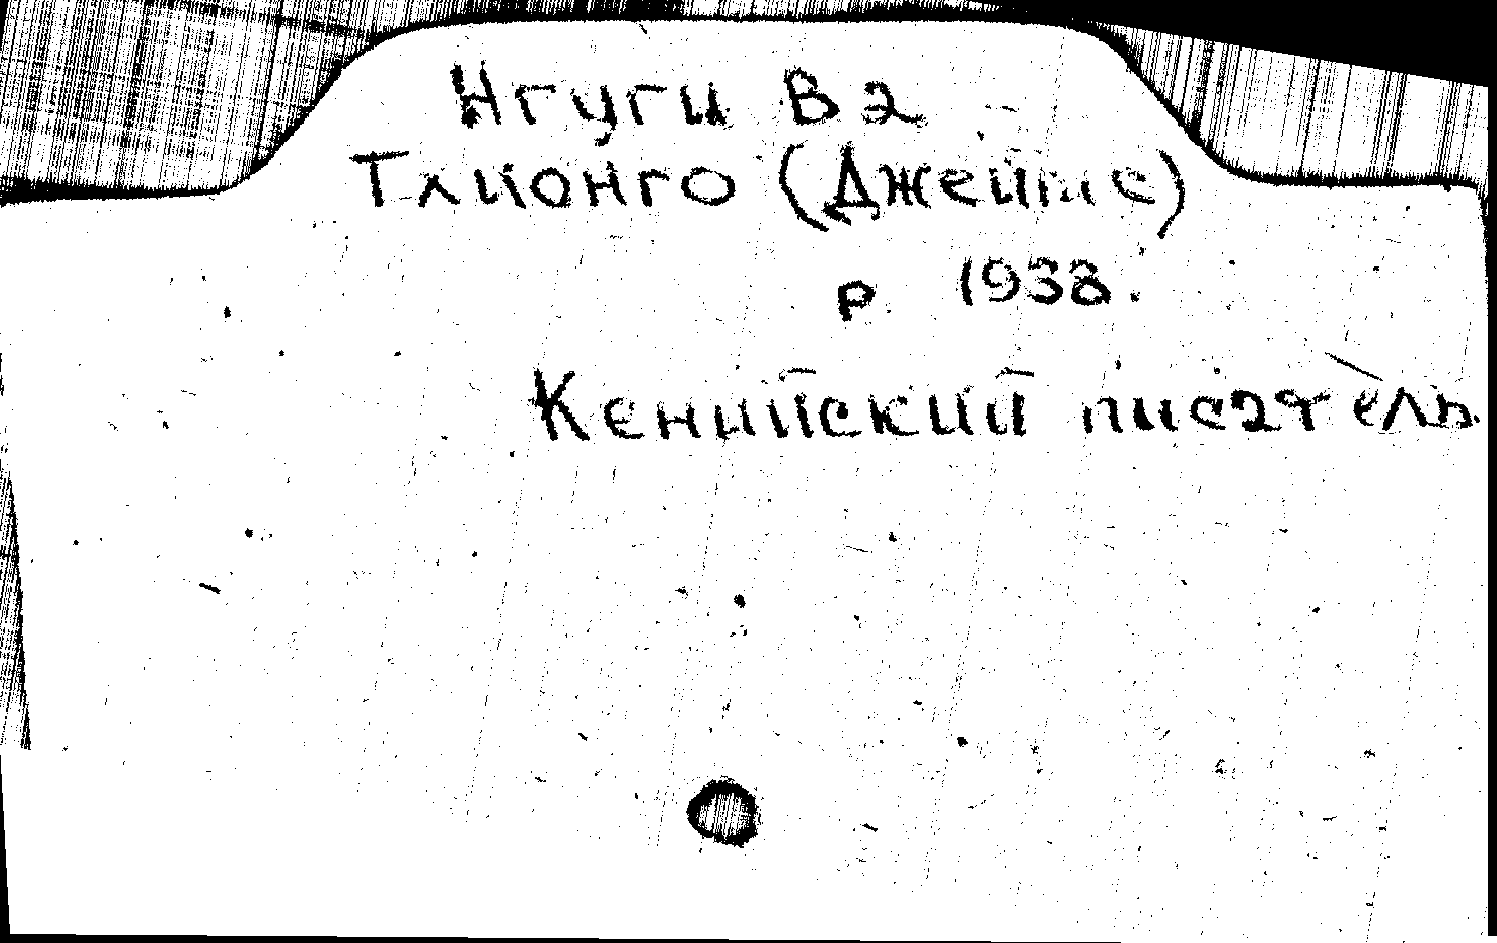 Нгуги Ва
Тхионго (Джеймс)
р 1938.
Кенийский писатель